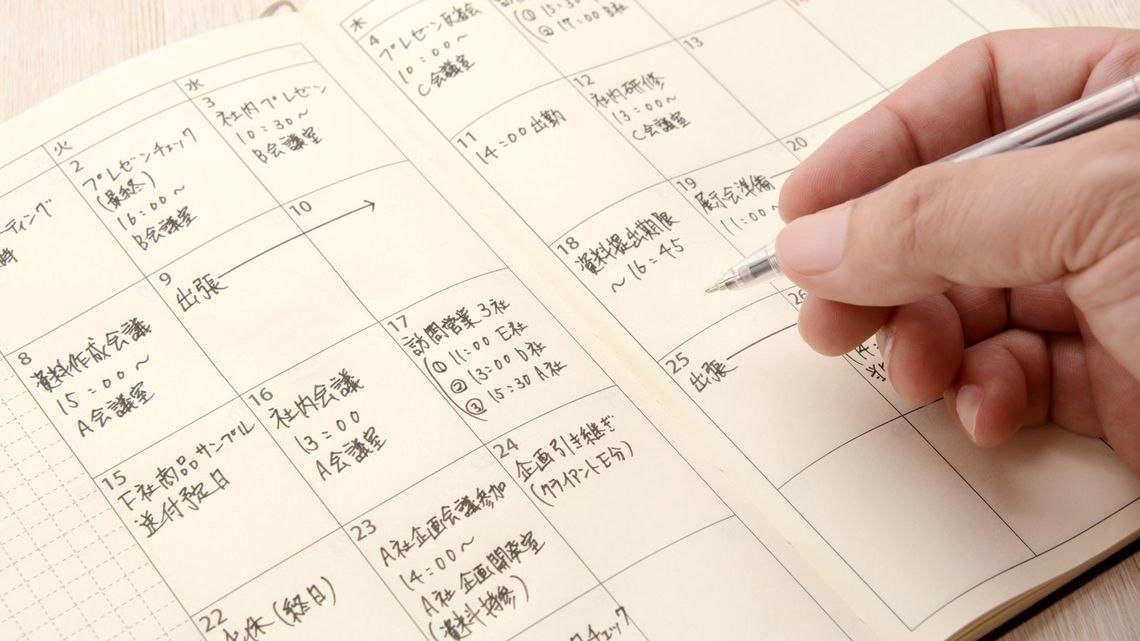 火
水
木
ーティング
時
2
プレゼンチェック
(最終)
16:00〜
B会議室
3
社内プレゼン
10:30〜
B会議室
4
プレゼン反省会
10:00〜
C会議室
① 15:30
② 17:00 B社
8
資料作成会議
15:00〜
A会議室
9
出張
10
11
14:00 出勤
12
社内研修
13:00〜
C会議室
13
15
F社商品サンプル
送付予定日
16
社内会議
13:00
A会議室
17
訪問営業 3社
① 11:00 E社
② 13:00 D社
③ 15:30 A社
18
資料提出期限
〜16:45
19
展示会準備
11:00〜
20
22
休(終日)
23
A社企画会議参加
14:00〜
A社 企画開発室
(資料持参)
24
企画引き継ぎ
(クライアントE分)
25
出張
26
14:
チェック